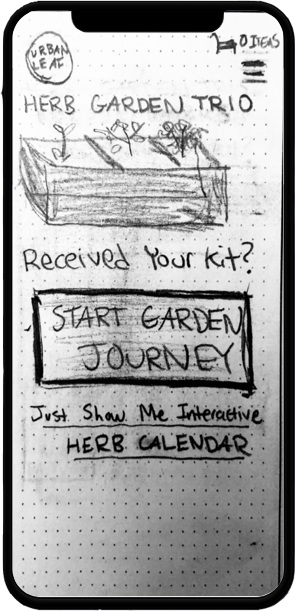 URBAN
LEAF
0 ITEMS
HERB GARDEN TRIO
Received Your Kit?
START GARDEN
JOURNEY
Just Show Me Interactive
HERB CALENDAR